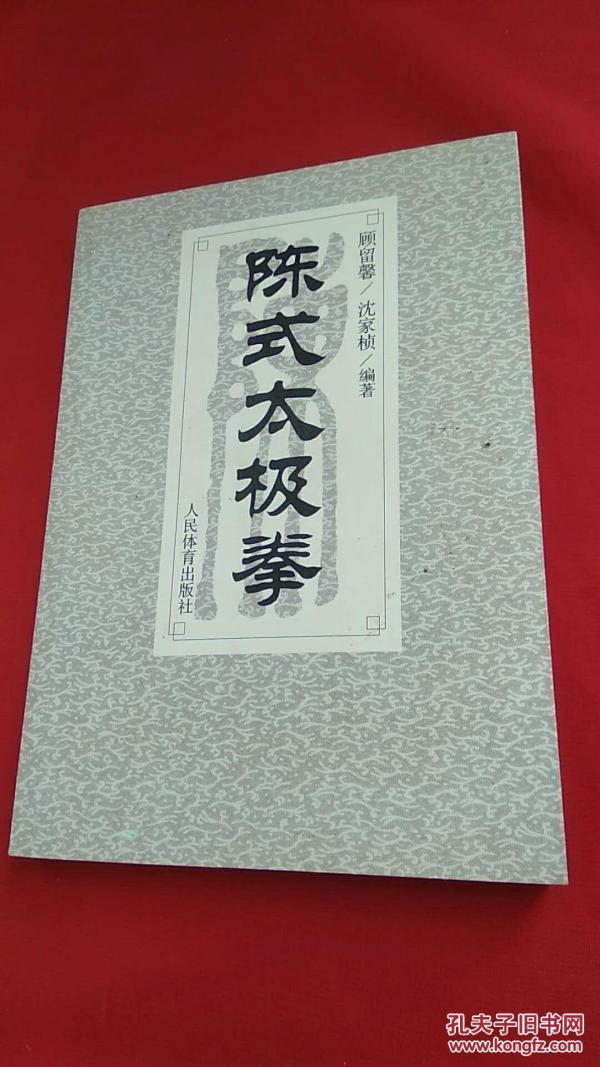 顾留馨/沈家桢/编著
陈式太极拳
人民体育出版社
孔夫子旧书网
www.kongfz.com